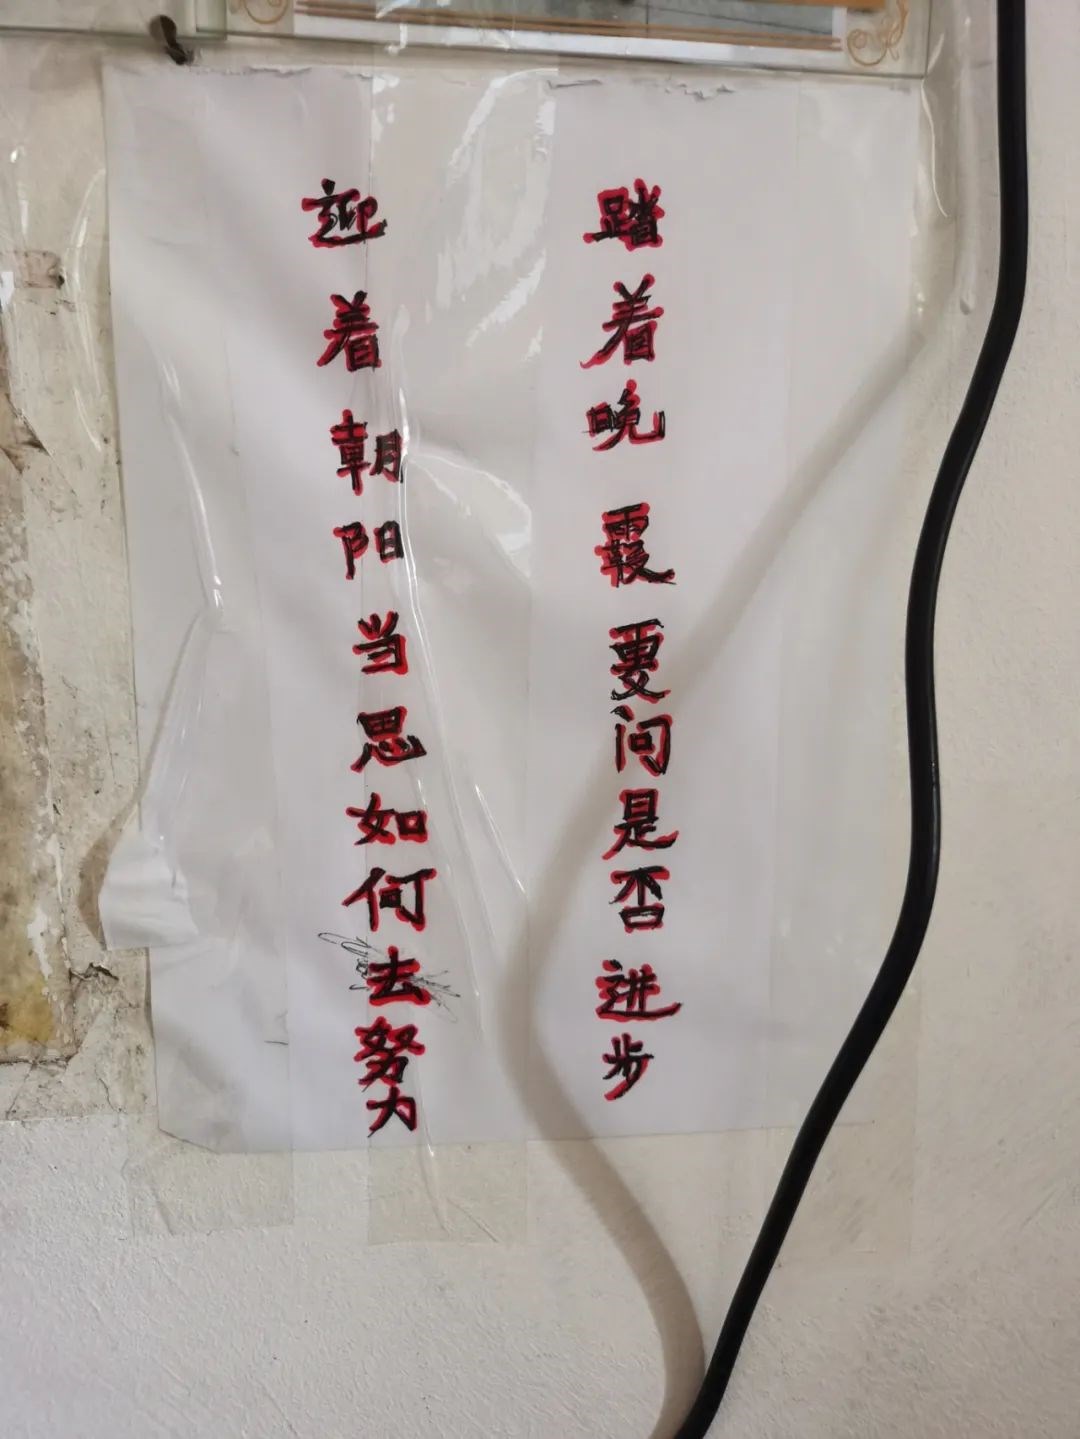 迎着朝阳当思如何去努力
踏着晚霞更问是否进步